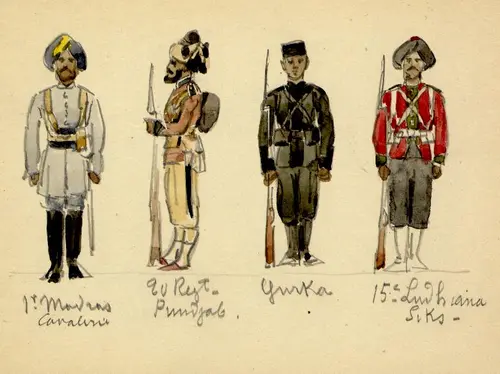 1st Madras
Cavalerie
20 Regt.
Pundjab.
Gurka
15e Ludhiana
Siks -